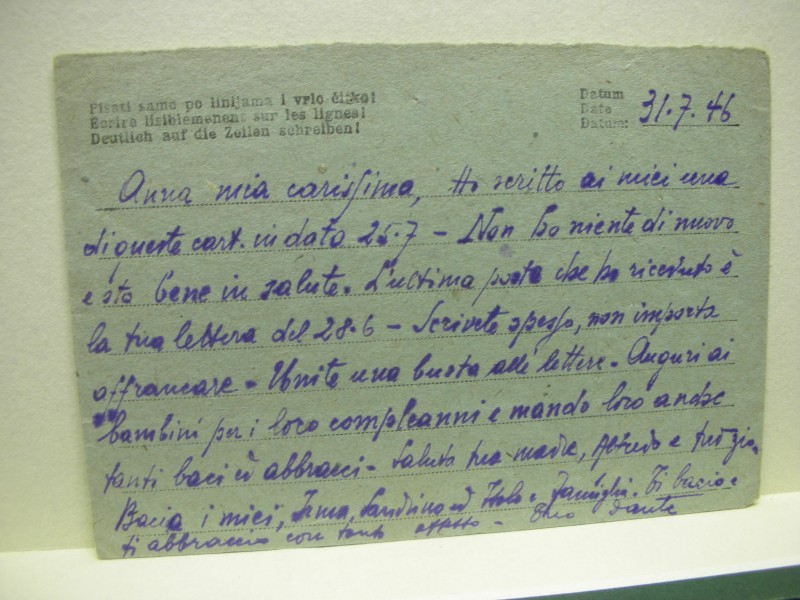 Pisati samo po linijama i vrlo čitko!
Ecrire lisiblemenent sur les lignes!
Deutlich auf die Zeilen schreiben!
Datum
Date
Datum: 31.7.46
Anna mia carissima, Ho scritto ai miei una
di queste cart. in data 25.7 - Non ho niente di nuovo
e sto bene in salute. L'ultima posta che ho ricevuto è
la tua lettera del 28.6 - Scrivete spesso, non importa
affrancare - Unite una busta alle lettere. Auguri ai
bambini per i loro compleanni e mando loro anche
tanti baci ed abbracci - Saluta tua madre, Alfredo e tuo zio.
Bacia i miei, Irma, Sandrino ed Italo e famiglia. Ti bacio e
ti abbraccio con tanto affetto - tuo Dante